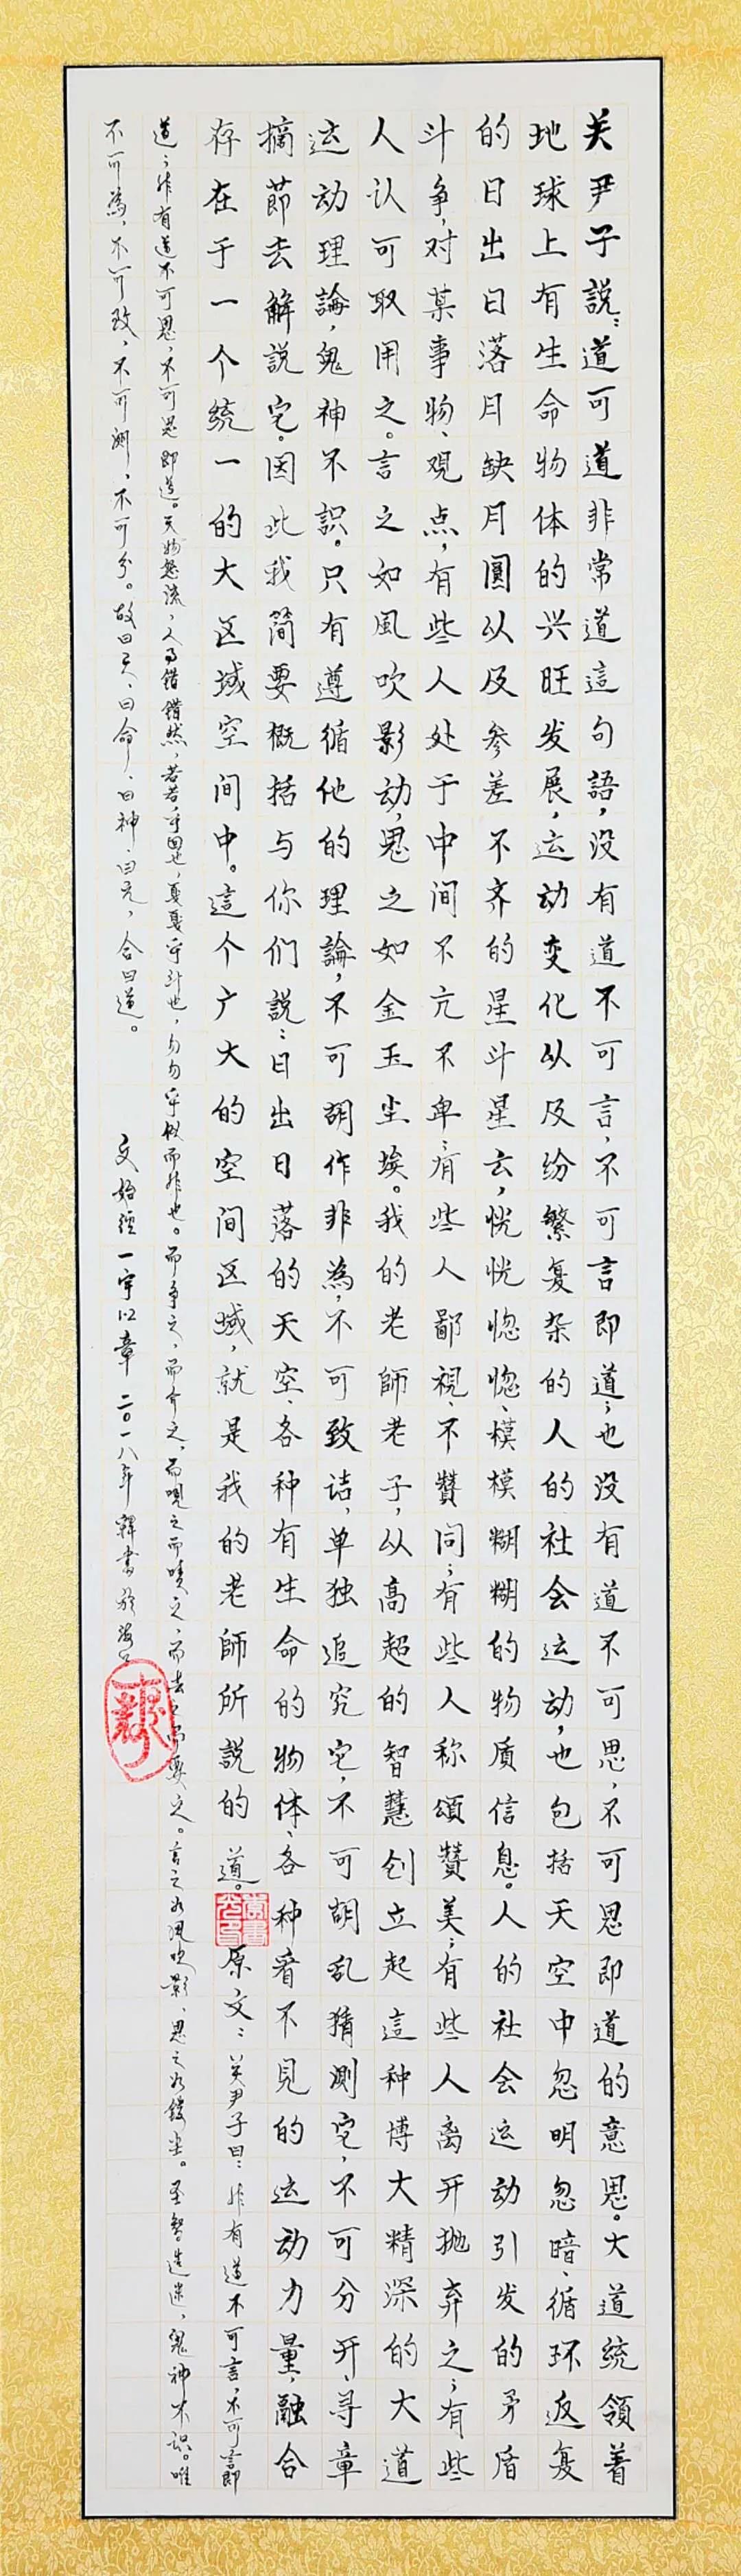 关尹子説：道可道非常道這句語，没有道不可言，不可言即道；也没有道不可思，不可思即道的意思。大道统领着
地球上有生命物体的兴旺发展，运动变化以及纷繁复杂的人的社会运动，也包括天空中忽明忽暗、循环返复
的日出日落月缺月圆以及参差不齐的星斗星云，恍恍惚惚、模模糊糊的物质信息。人的社会运动引发的矛盾
斗争，对某事物、观点，有些人处于中间不亢不卑；有些人鄙視、不贊同；有些人称頌贊美；有些人离开抛弃之；有些
人认可取用之。言之如風吹影动，思之如金玉尘埃。我的老師老子，从高超的智慧创立起這种博大精深的大道
运动理論，鬼神不識。只有遵循他的理論，不可胡作非為，不可致诘，单独追究它，不可胡乱猜测它，不可分开、寻章
摘節去解説它。因此我简要概括与你们説：日出日落的天空、各种有生命的物体、各种看不見的运动力量，融合
存在于一个统一的大区域空间中。這个广大的空间区域，就是我的老師所説的道。原文：关尹子曰：非有道不可言，不可言即
道；非有道不可思，不可思即道。天物怒流，人事错错然，若若乎回也，戛戛乎斗也，勿勿乎似而非也。而争之，而介之，而哯之，而啧之，而去之，而要之。言之如風吹影，思之如镂尘。圣智造迷，鬼神不识。唯
不可為，不可致，不可测，不可分。故曰天、曰命、曰神、曰元，合曰道。 文始经一宇以章 二〇一八年韓書於